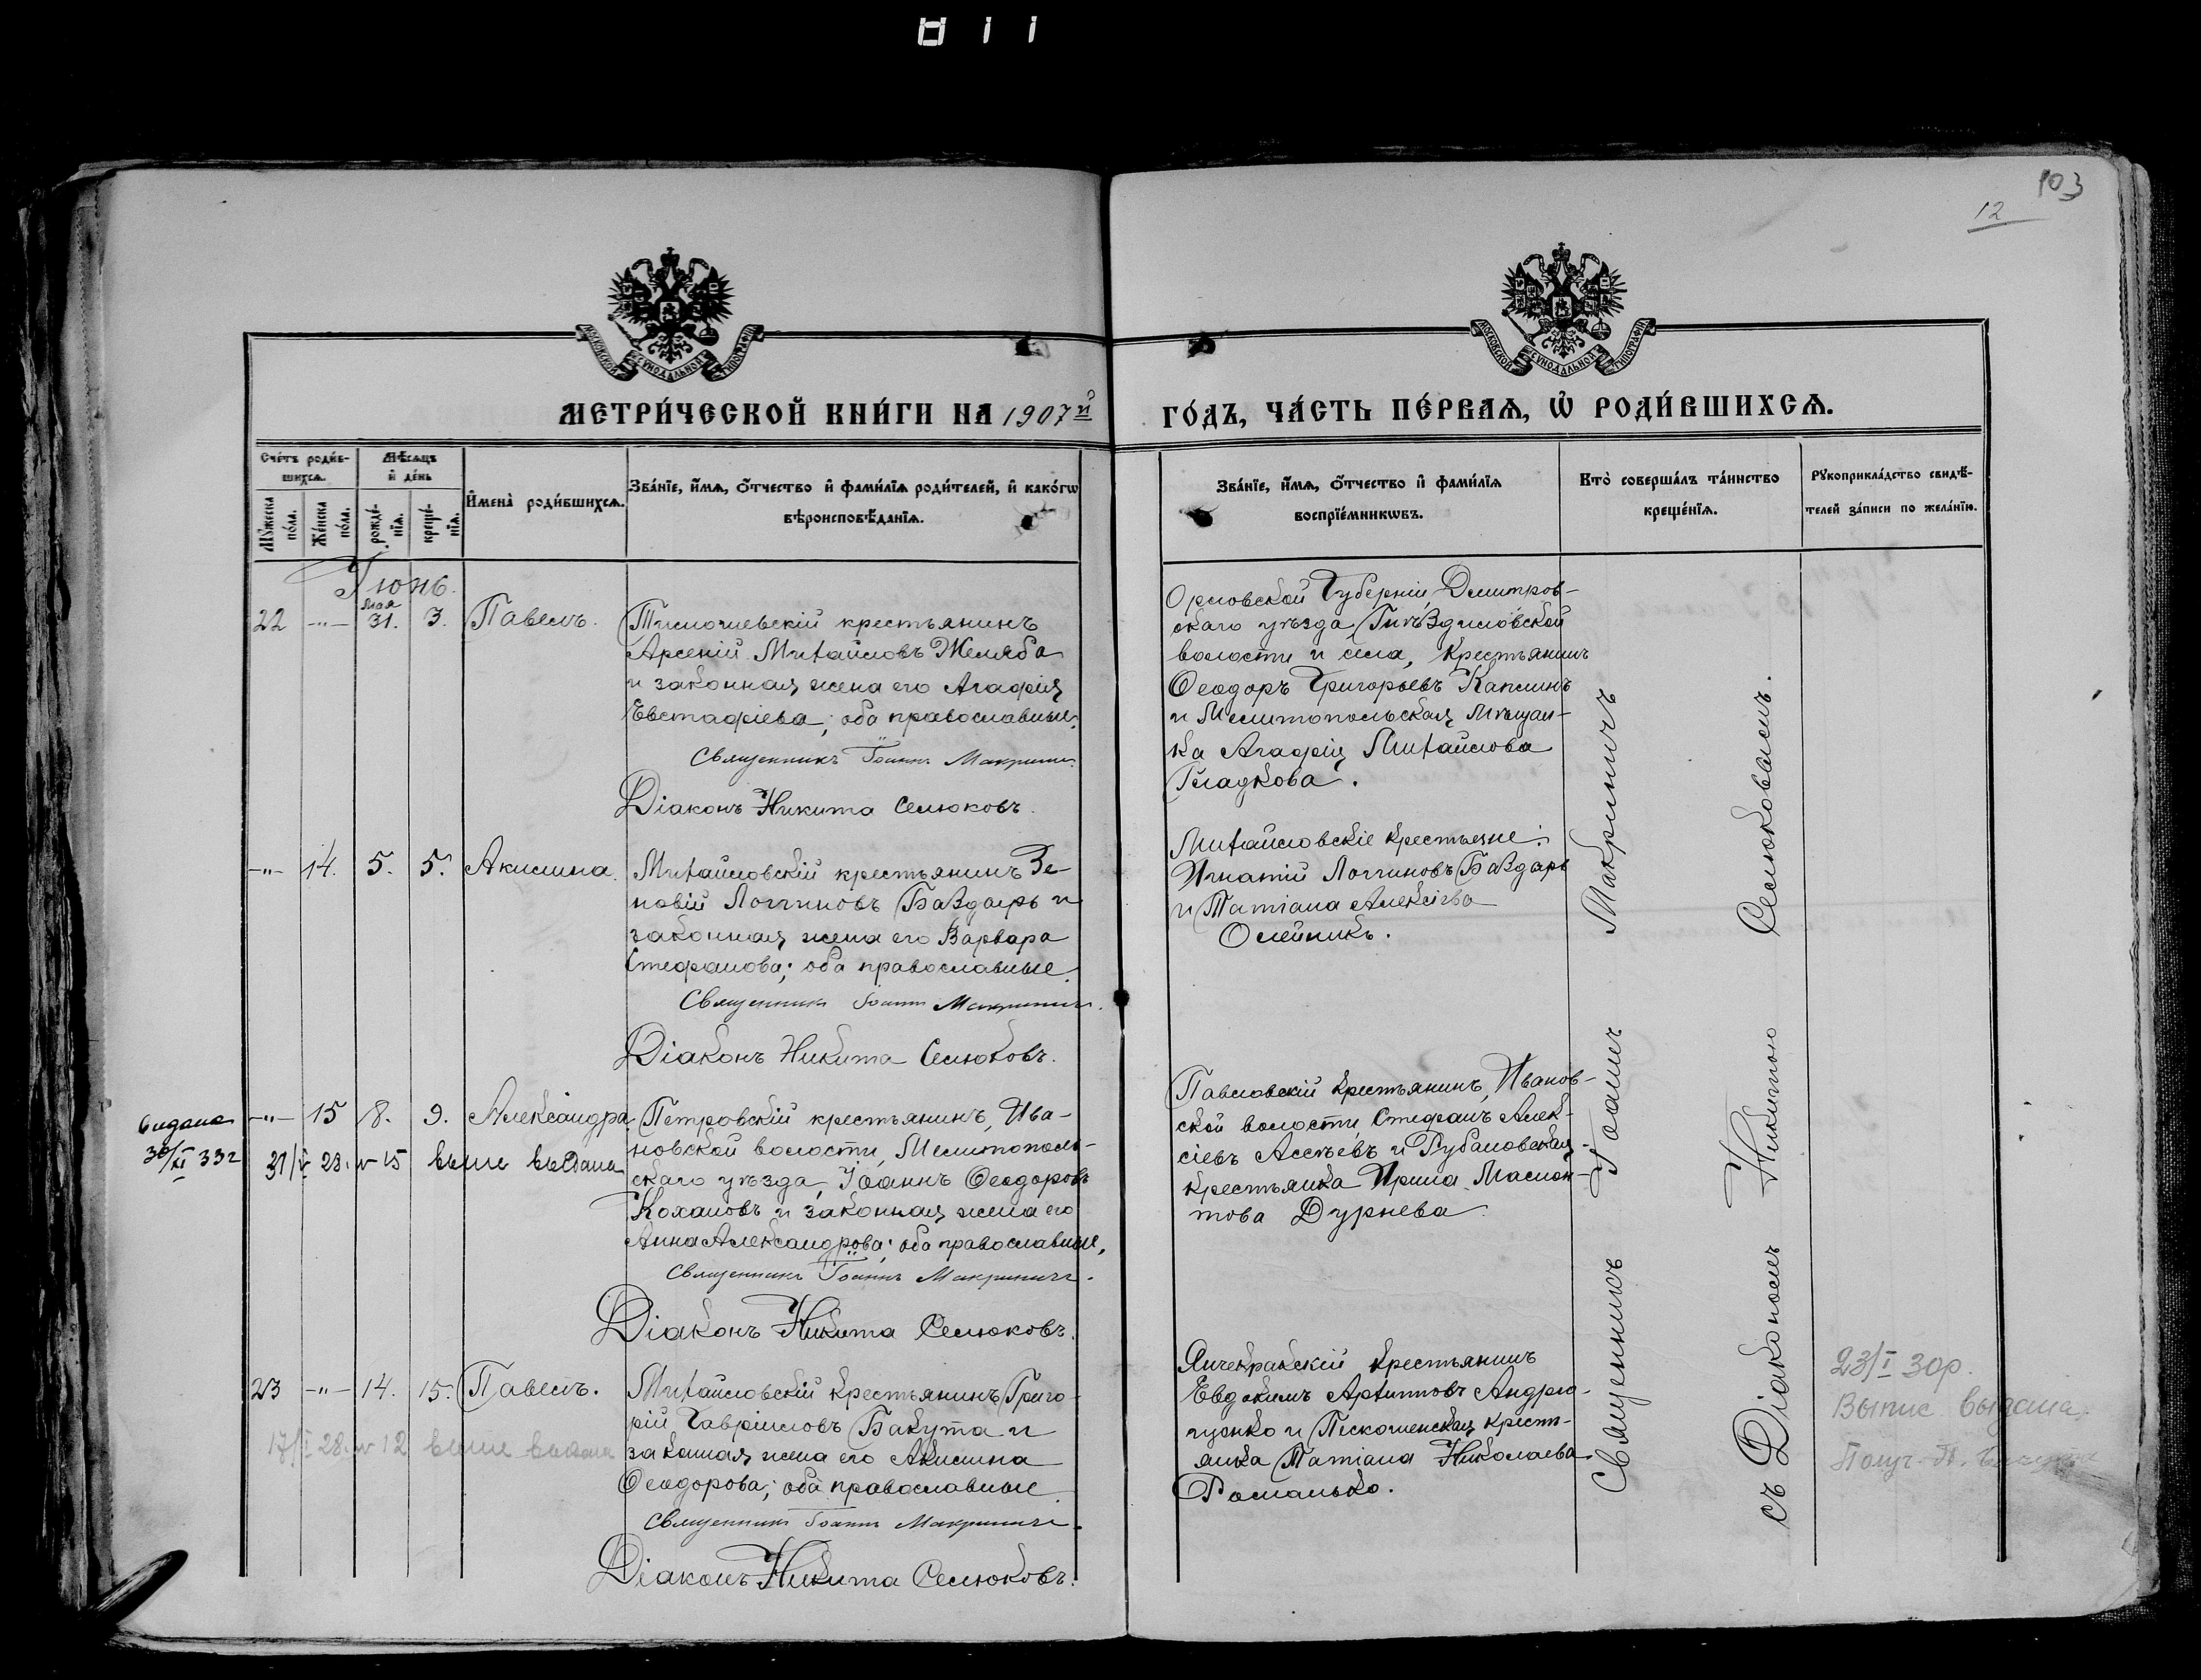 811
103
12
МОСКОВСКОЙ СѴНОДАЛЬНОЙ ТИПОГРАФІИ
МОСКОВСКОЙ СѴНОДАЛЬНОЙ ТИПОГРАФІИ
МЕТРИ́ЧЕСКОЙ КНИ́ГИ НА 1907й
ГО́ДЪ, ЧА́СТЬ ПЕ́РВАѦ, Ѡ҆ РОДИ́ВШИХСѦ.
Сче́тъ роди́в-
шихсѧ.
Мꙋ́жеска по́ла.
Же́нска по́ла.
Мѣ́сѧцъ
и҆ де́нь
рожде́-
нїѧ.
креще́-
нїѧ.
И҆мена̀ роди́вшихсѧ.
Зва́нїе, и҆́мѧ, ѻ҆́тчество и҆ фами́лїѧ роди́телей, и҆ како́гѡ
вѣроисповѣ́данїѧ.
Зва́нїе, и҆́мѧ, ѻ҆́тчество и҆ фами́лїѧ
воспрїе́мникѡвъ.
Кто̀ соверша́лъ та́инство
креще́нїѧ.
Рꙋкоприкла́дство свидѣ́-
телей за́писи по жела́нїю.
Іюнь.
22 -"- Мая 31. 3. Павелъ.
Тимошевскій крестьянинъ
Арсеній Михайловъ Желяба
и законная жена его Агафія
Евстафіева; оба православные.
Священникъ Іоаннъ Макриничъ
Діаконъ Никита Селюковъ.
Орловской Губерніи, Дмитров-
скаго уѣзда, Гнѣздиловской
волости и села, крестьянинъ
Ѳеодоръ Григорьевъ Капшинъ
и Мелитопольская мѣщан-
ка Агафія Михайлова
Гладкова.
-"- 14. 5. 5. Акилина.
Михайловскій крестьянинъ Зе-
новій Логгиновъ Баздырь и
законная жена его Варвара
Стефанова; оба православные.
Священникъ Іоаннъ Макриничъ.
Діаконъ Никита Селюковъ.
Михайловскіе крестьяне:
Игнатій Логгиновъ Баздырь
и Татіана Алексіева
Олейникъ.
видана
30/XI 33г
-"- 15 8. 9. Александра.
31/V 28. № 15 выпис выдана
Петровскій крестьянинъ, Ива-
новской волости, Мелитополь-
скаго уѣзда, Іоаннъ Ѳеодоровъ
Кохановъ и законная жена его
Анна Александрова; оба православные.
Священникъ Іоаннъ Макриничъ.
Діаконъ Никита Селюковъ.
Павловскій крестьянинъ, Иванов-
ской волости, Стефанъ Алек-
сіевъ Асѣевъ и Рубановская
крестьянка Ирина Маслон-
това Дурнева
23 -"- 14. 15. Павелъ.
17/I 28. № 12 выпис выдана
Михайловскій крестьянинъ Григо-
рій Гавріиловъ Бакута и
законная жена его Акилина
Ѳеодорова; оба православные.
Священникъ Іоаннъ Макриничъ.
Діаконъ Никита Селюковъ.
Янчекракскій крестьянинъ
Евдокимъ Архиповъ Андрю-
щенко и Пескошенская кресть-
янка Татіана Николаева
Романько.
Священникъ Іоаннъ Макриничъ
съ Діакономъ Никитою Селюковымъ.
23/I 30р.
Выпис выдана.
Получ.